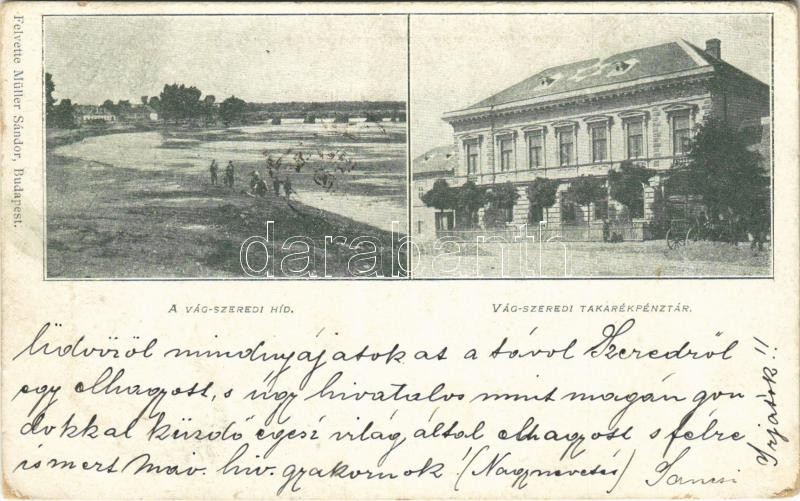 Felvette Müller Sándor, Budapest.
darabanth
A VÁG-SZEREDI HÍD.
VÁG-SZEREDI TAKARÉKPÉNZTÁR.
Üdvözöl mindnyájatokat a távol Szeredről
egy elhagyott, s úgy hivatalos mint magán gon
dokkal küzdő egész világ által elhagyott s félre
ismert Máv. hiv. gyakornok! (Nagynevetés) Jancsi
Irjatok!!